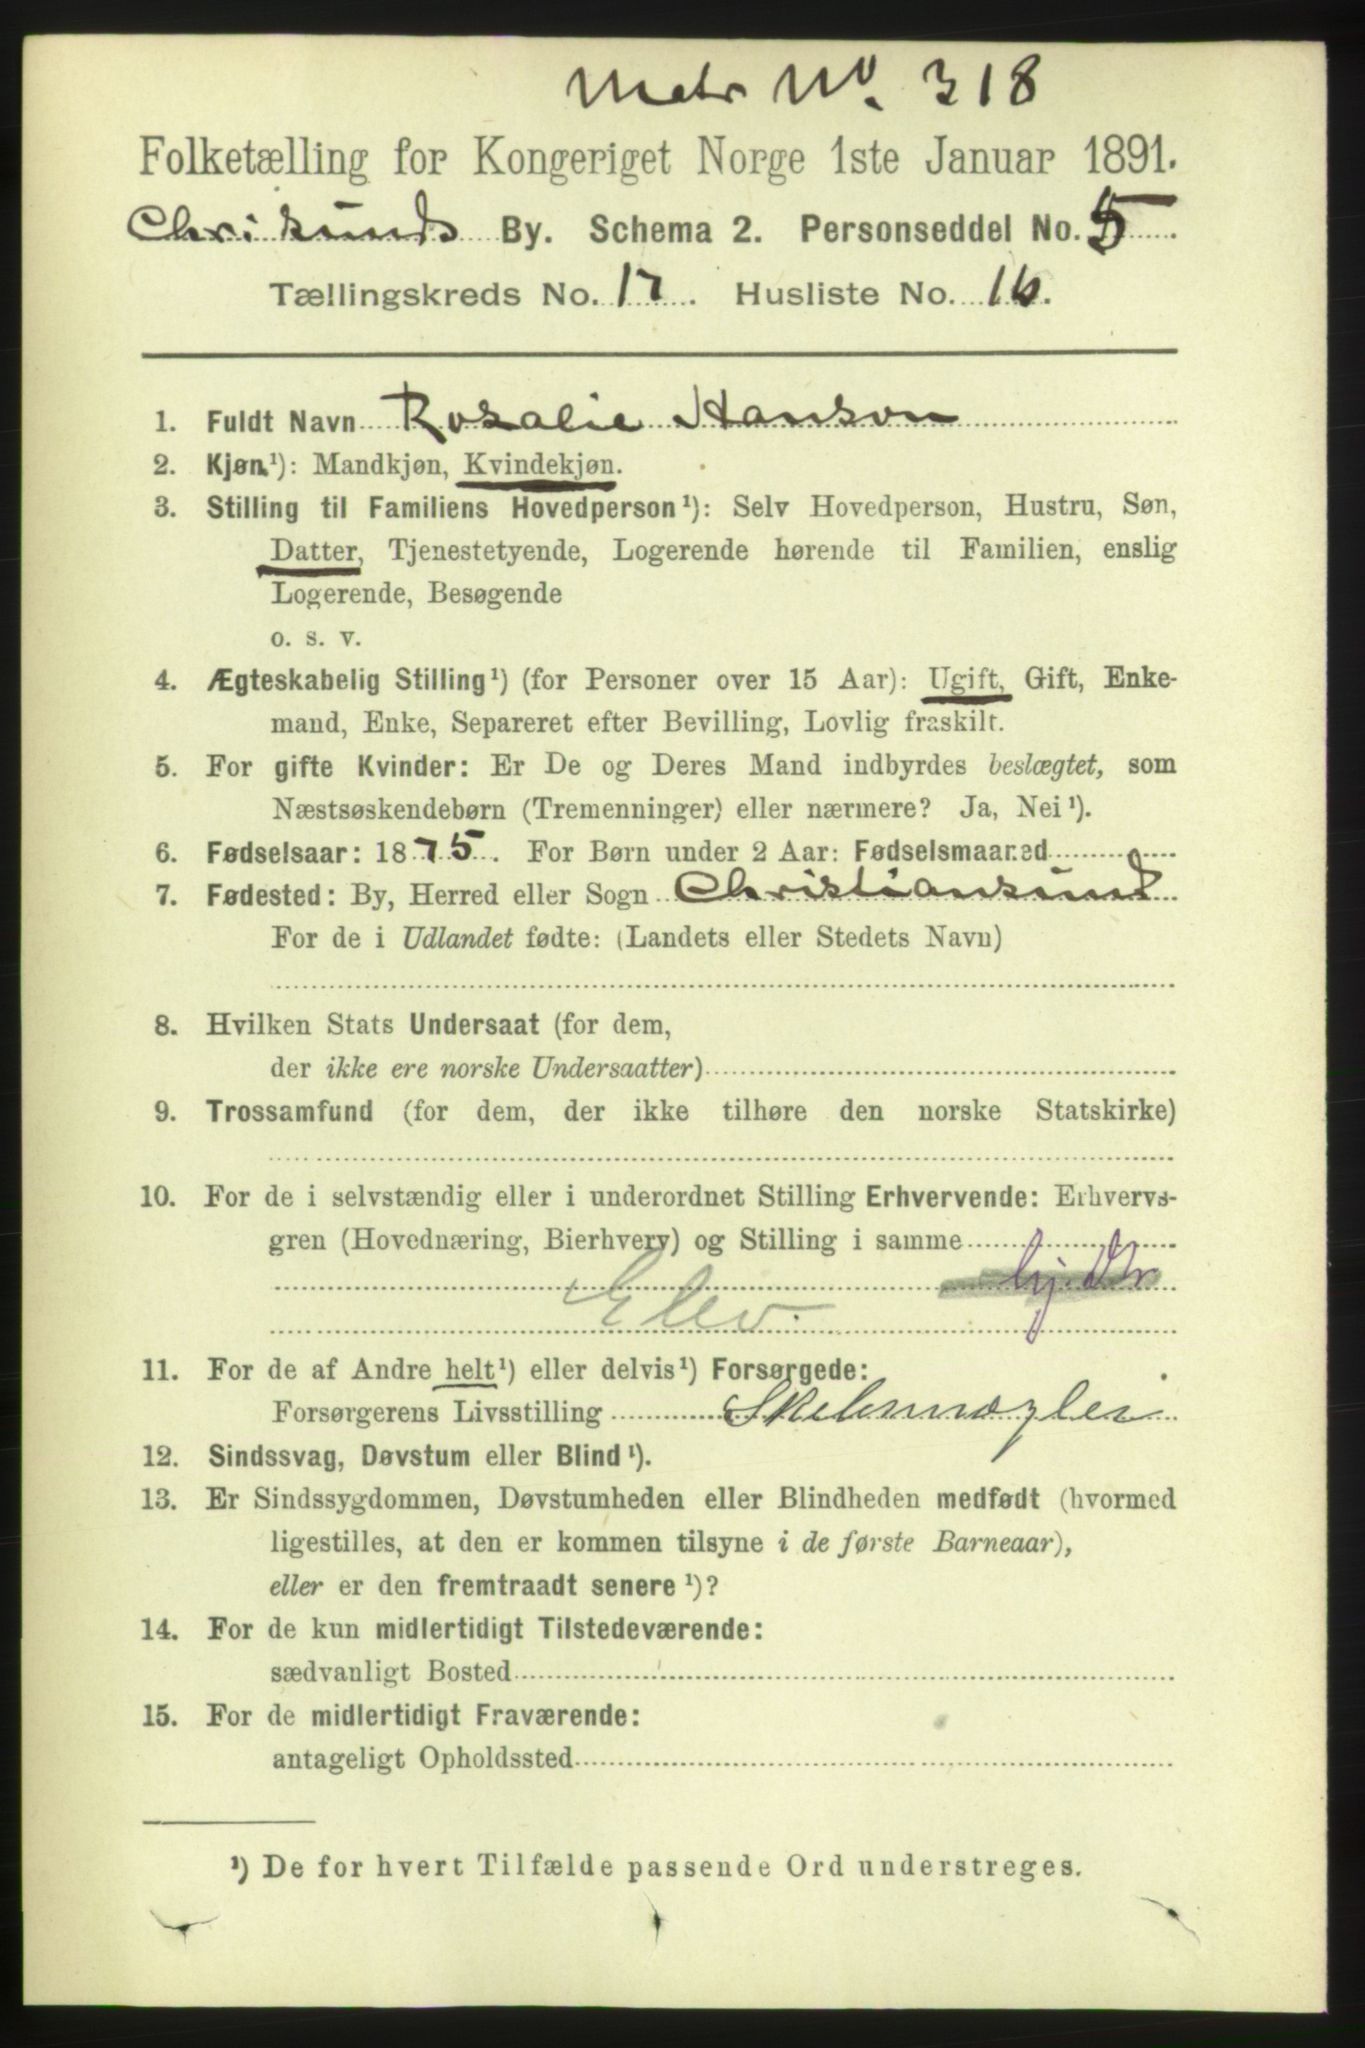 Matr No. 318
Folketælling for Kongeriget Norge 1ste Januar 1891.
Chrisunds By. Schema 2. Personseddel No. 5
Tællingskreds No. 17. Husliste No. 16.
1. Fuldt Navn Rosalie Hanson
2. Kjøn ¹): Mandkjøn, Kvindekjøn.
3. Stilling til Familiens Hovedperson ¹): Selv Hovedperson, Hustru, Søn,
Datter, Tjenestetyende, Logerende hørende til Familien, enslig
Logerende, Besøgende
o. s. v.
4. Ægteskabelig Stilling ¹) (for Personer over 15 Aar): Ugift, Gift, Enke-
mand, Enke, Separeret efter Bevilling, Lovlig fraskilt.
5. For gifte Kvinder: Er De og Deres Mand indbyrdes beslægtet, som
Næstsøskendebørn (Tremenninger) eller nærmere? Ja, Nei ¹).
6. Fødselsaar: 1875. For Børn under 2 Aar: Fødselsmaaned
7. Fødested: By, Herred eller Sogn Christiansund
For de i Udlandet fødte: (Landets eller Stedets Navn)
8. Hvilken Stats Undersaat (for dem,
der ikke ere norske Undersaatter)
9. Trossamfund (for dem, der ikke tilhøre den norske Statskirke)
10. For de i selvstændig eller i underordnet Stilling Erhvervende: Erhvervs-
gren (Hovednæring, Bierhverv) og Stilling i samme
Elev.
11. For de af Andre helt ¹) eller delvis ¹) Forsørgede:
Forsørgerens Livsstilling
12. Sindssvag, Døvstum eller Blind ¹).
13. Er Sindssygdommen, Døvstumheden eller Blindheden medfødt (hvormed
ligestilles, at den er kommen tilsyne i de første Barneaar),
eller er den fremtraadt senere ¹)?
14. For de kun midlertidigt Tilstedeværende:
sædvanligt Bosted
15. For de midlertidigt Fraværende:
antageligt Opholdssted
¹) De for hvert Tilfælde passende Ord understreges.